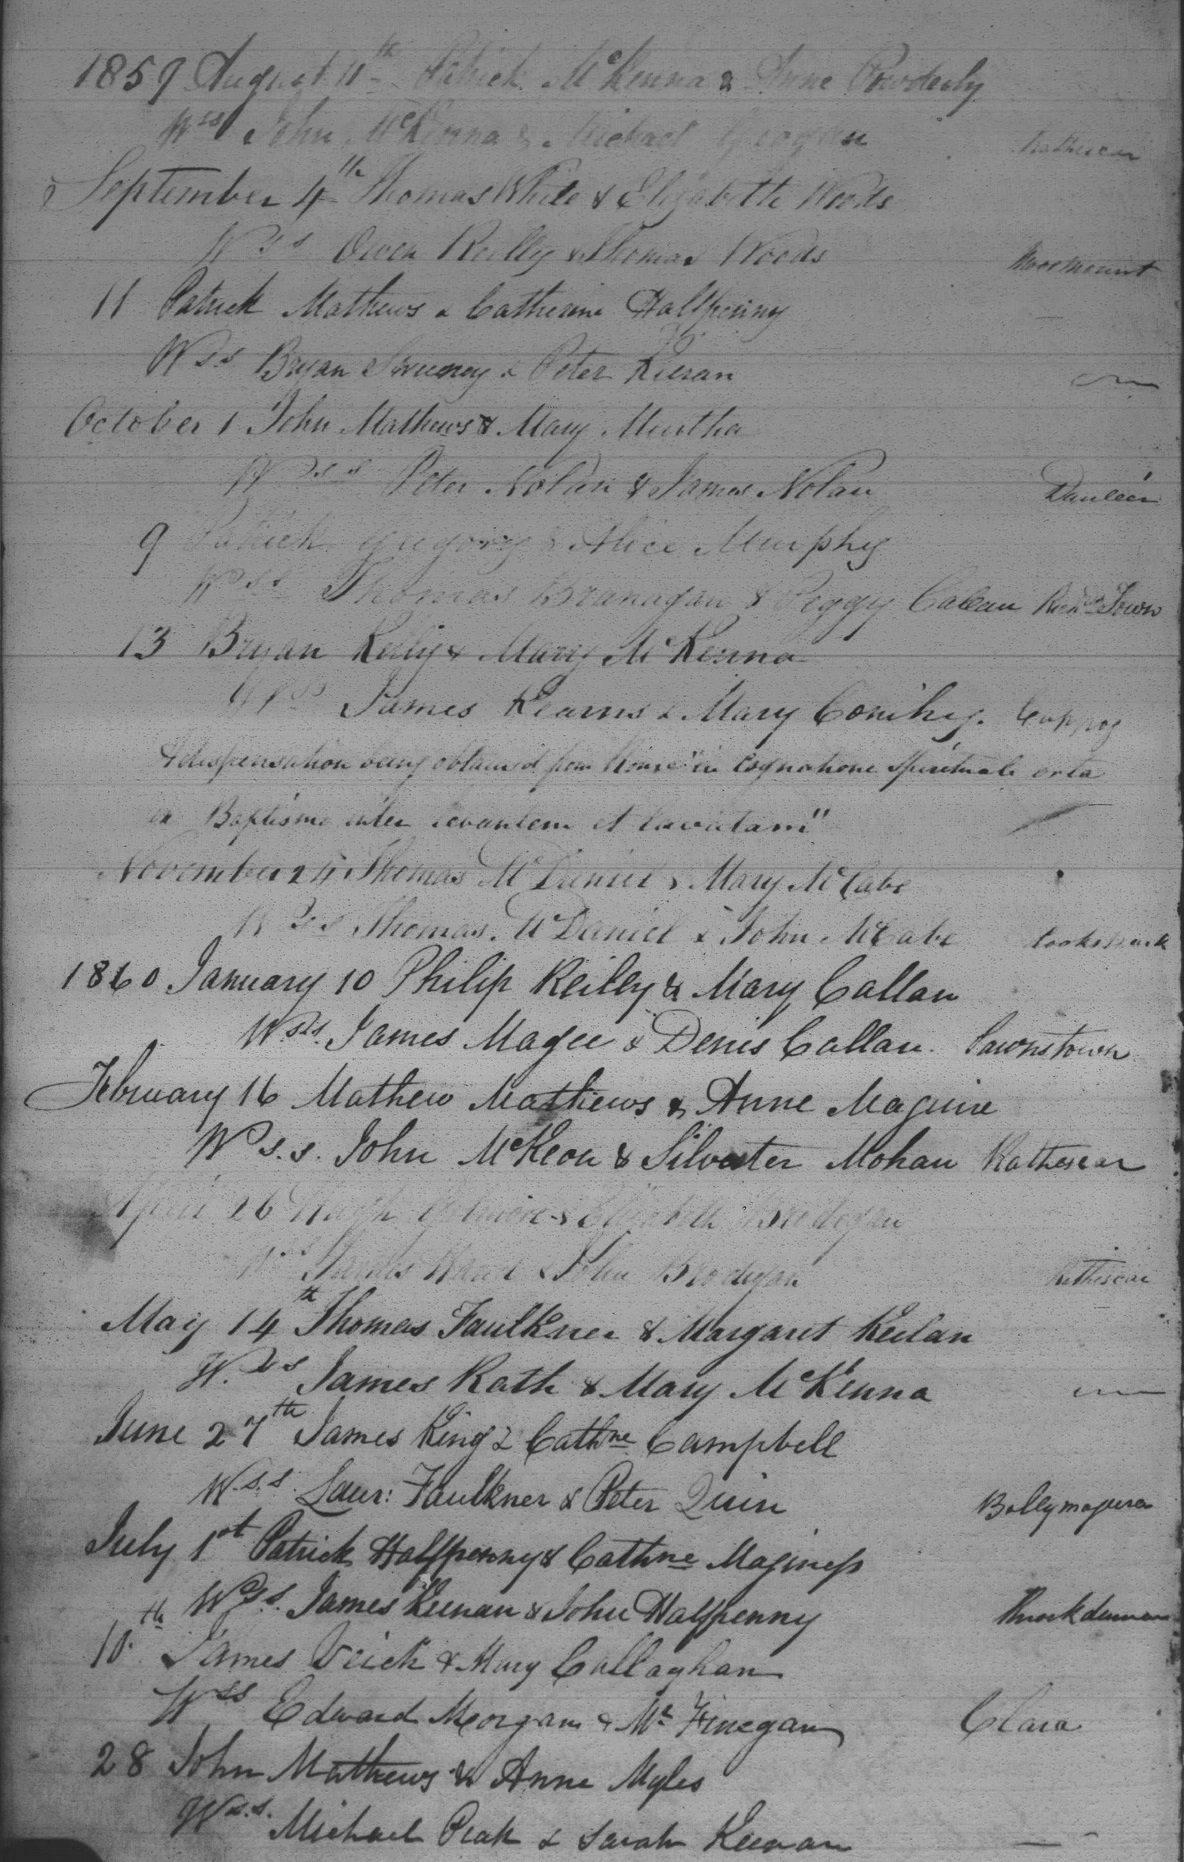 1859 August 11th Patrick McKenna & Anne Powderly
Wss John McKenna & Michael Grogan
September 4th Thomas White & Elizabeth Woods
Wss Owen Reilly & Thomas Woods
11 Patrick Mathews & Catherine Halfpenny
Wss Bryan Sweeney & Peter Kieran
October 1 John Mathews & Mary Murtha
Wss Peter Nolan & James Nolan Dunleer
9 Patrick Gregory & Alice Murphy
Wss Thomas Branagan & Peggy Callan Town
13 Bryan Reilly & Mary McKenna
Wss James Kearns & Mary Conihy. Cappog
dispensation being obtained from "in cognatione spirituali orta
ex Baptismo inter levantem et lavatam"
November 24 Thomas McDaniel & Mary McCabe
Wss Thomas McDaniel & John McCabe
1860 January 10 Philip Reilly & Mary Callan
Wss. James Magee & Denis Callan. Pawnstown
February 16 Mathew Mathews & Anne Maguire
Wss. John McKeon & Silvester Mohan Rathescar
April 26 Hugh & Elizabeth Brodigan
Wss James Ward & John Brodigan Rathescar
May 14th Thomas Faulkner & Margaret Keelan
Wss James Rath & Mary McKenna
June 27th James King & Cathne Campbell
Wss. Laur: Faulkner & Peter Quin Ballymaguera
July 1st Patrick Halfpenny & Cathne Maginess
Wss. James Keenan & John Halfpenny
10th James & Mary Callaghan
Wss Edward Morgan & Mr Finegan Clara
28 John Mathews & Anne Myles
Wss. Michael Peak & Sarah Keenan